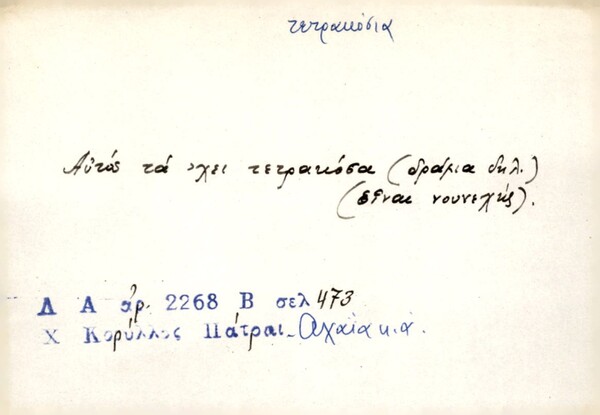 τετρακόσια
Αὐτός τά 'χει τετρακόσα (δράμια δηλ.)
(εἶναι νουνεχής).
Λ Α ἀρ. 2268 Β σελ 473
Χ Κορύλλος Πάτραι - Ἀχαΐα κ.ἀ.